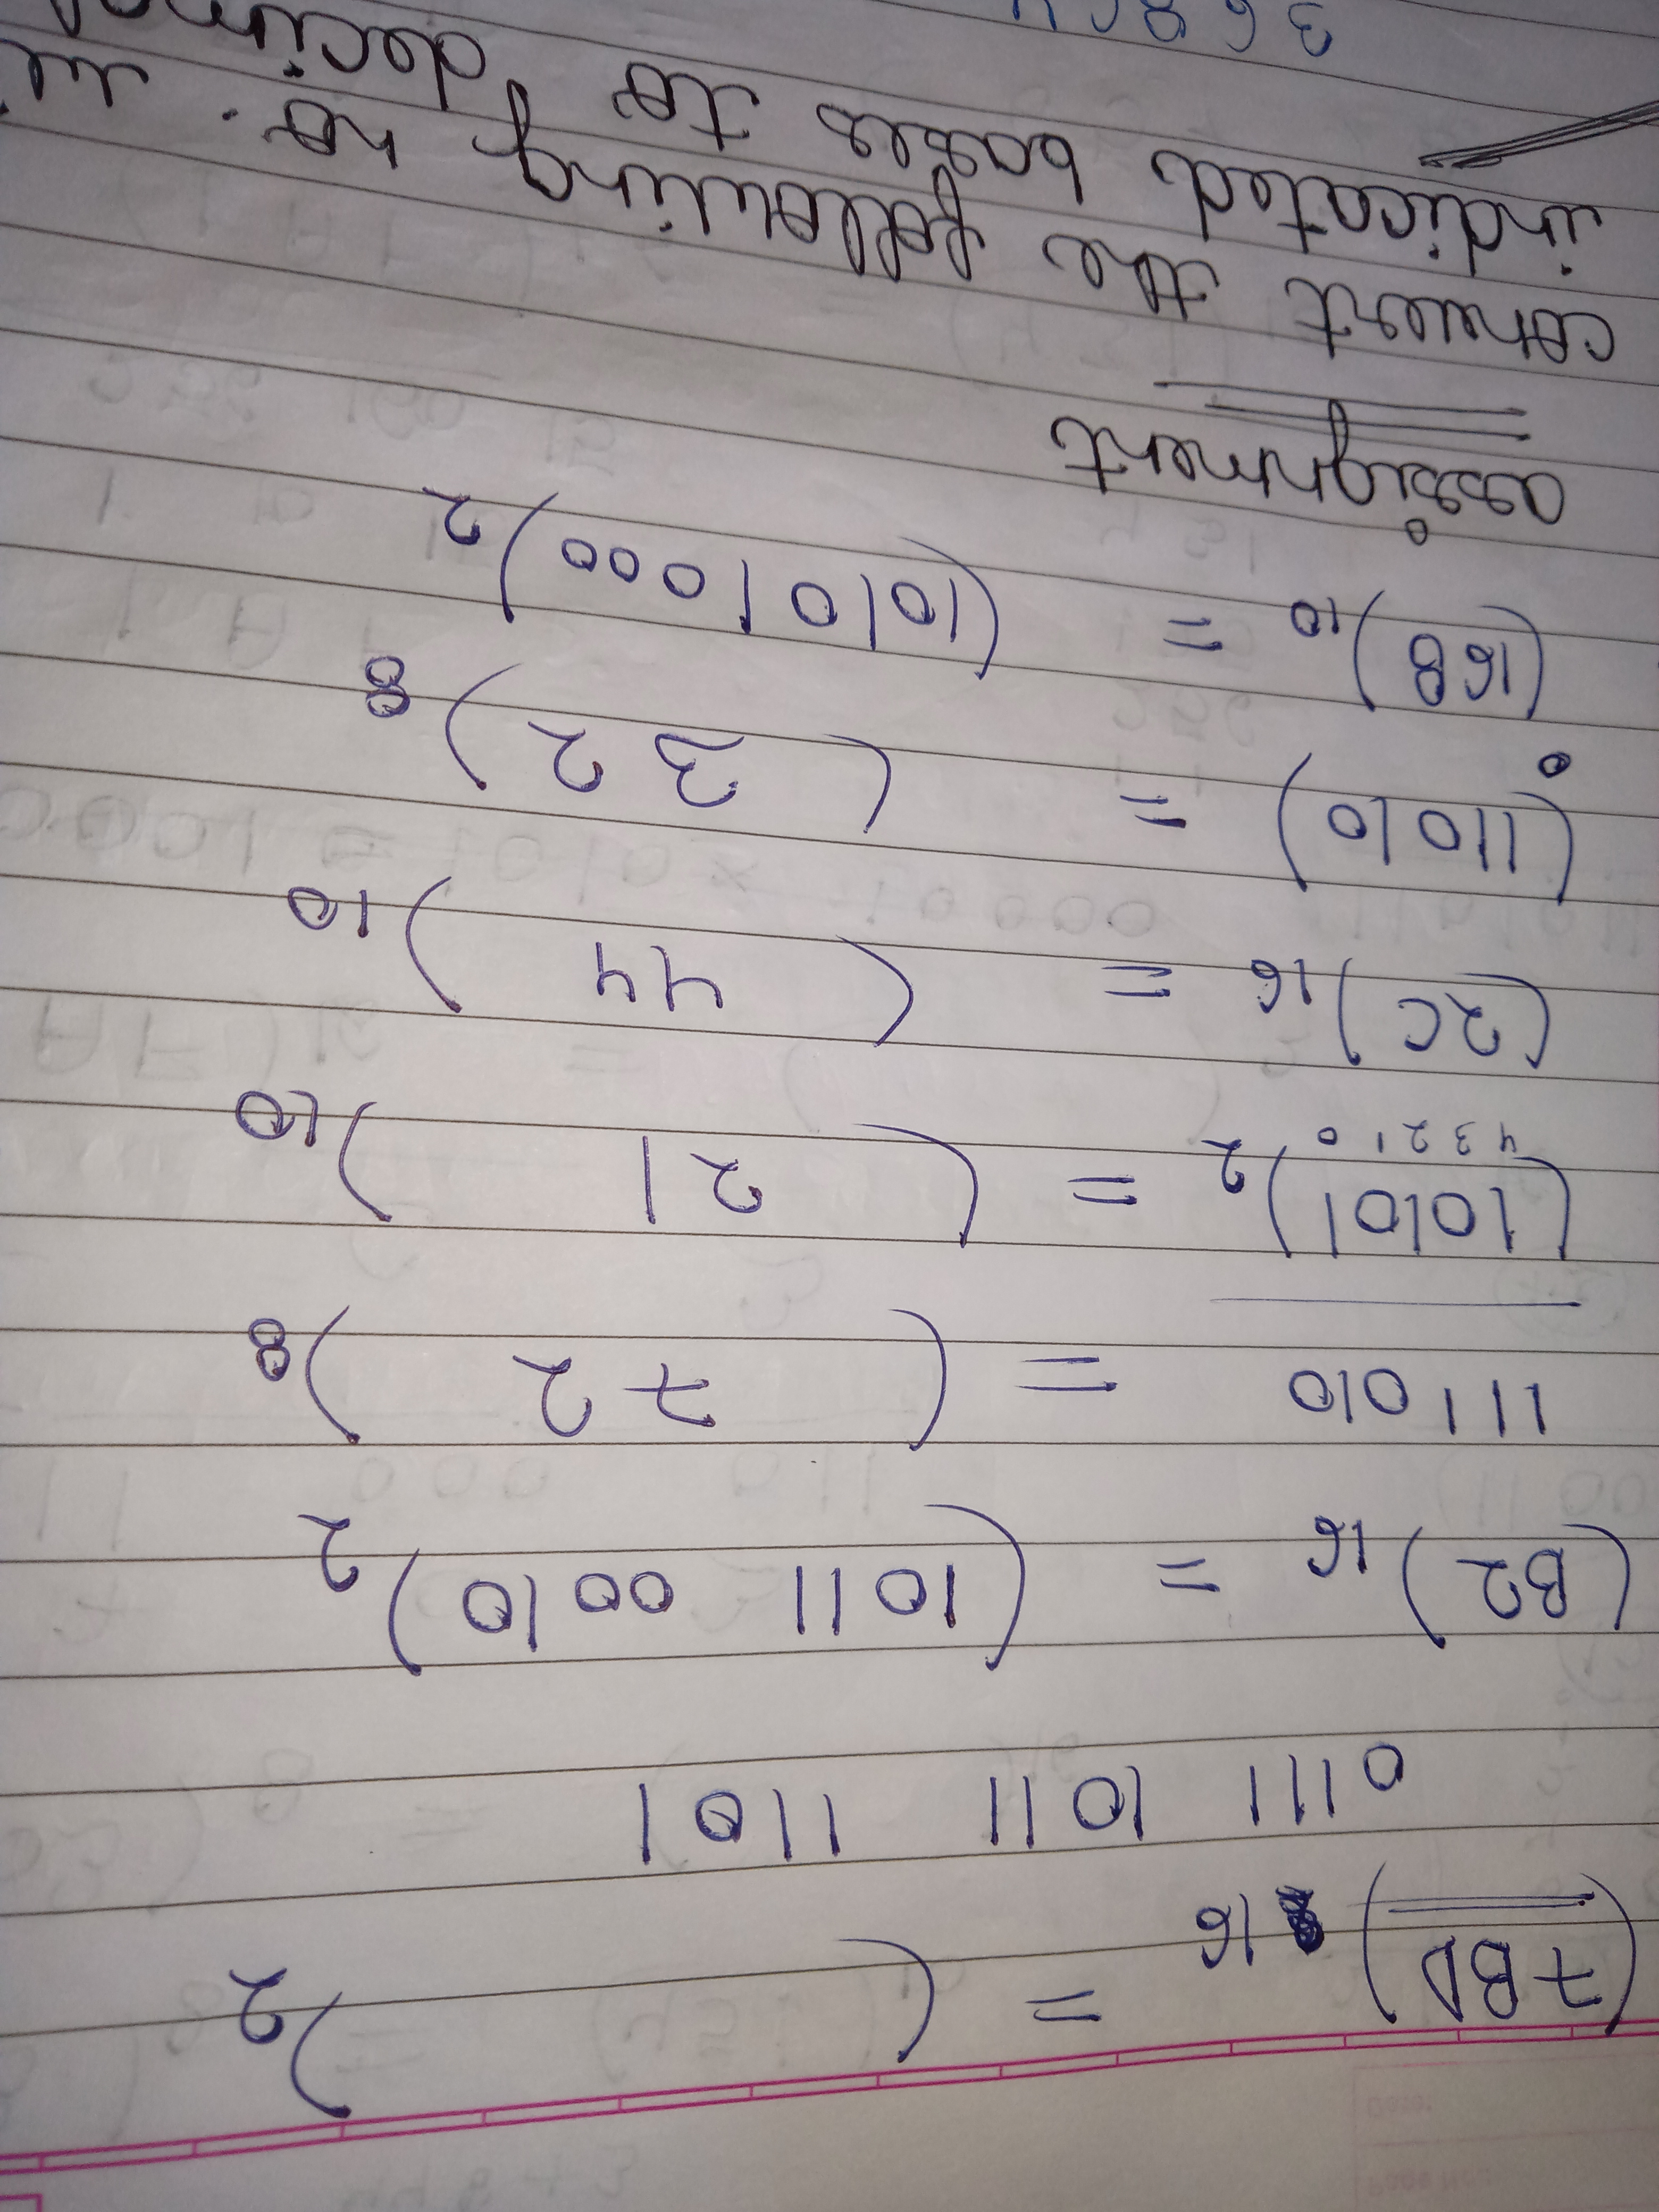 (7BD)16 = ( )2
0111 1011 1101
(B2)16 = (1011 0010)2
111010 = ( 72 )8
(10101)2 = ( 21 )10
4 3 2 1 0
(2C)16 = ( 44 )10
(11010) = ( 32 )8
(168)10 = (10101000)2
assignment
convert the following no. in
indicated bases to decimal